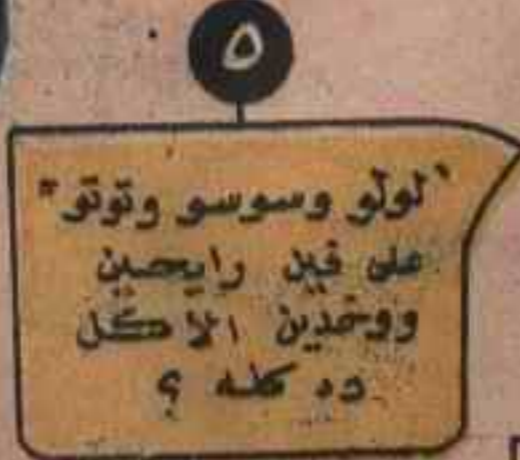 ٥
"لولو وسوسو وتوتو"
على فين رايحين
ووخدين الاكل
ده كله ؟